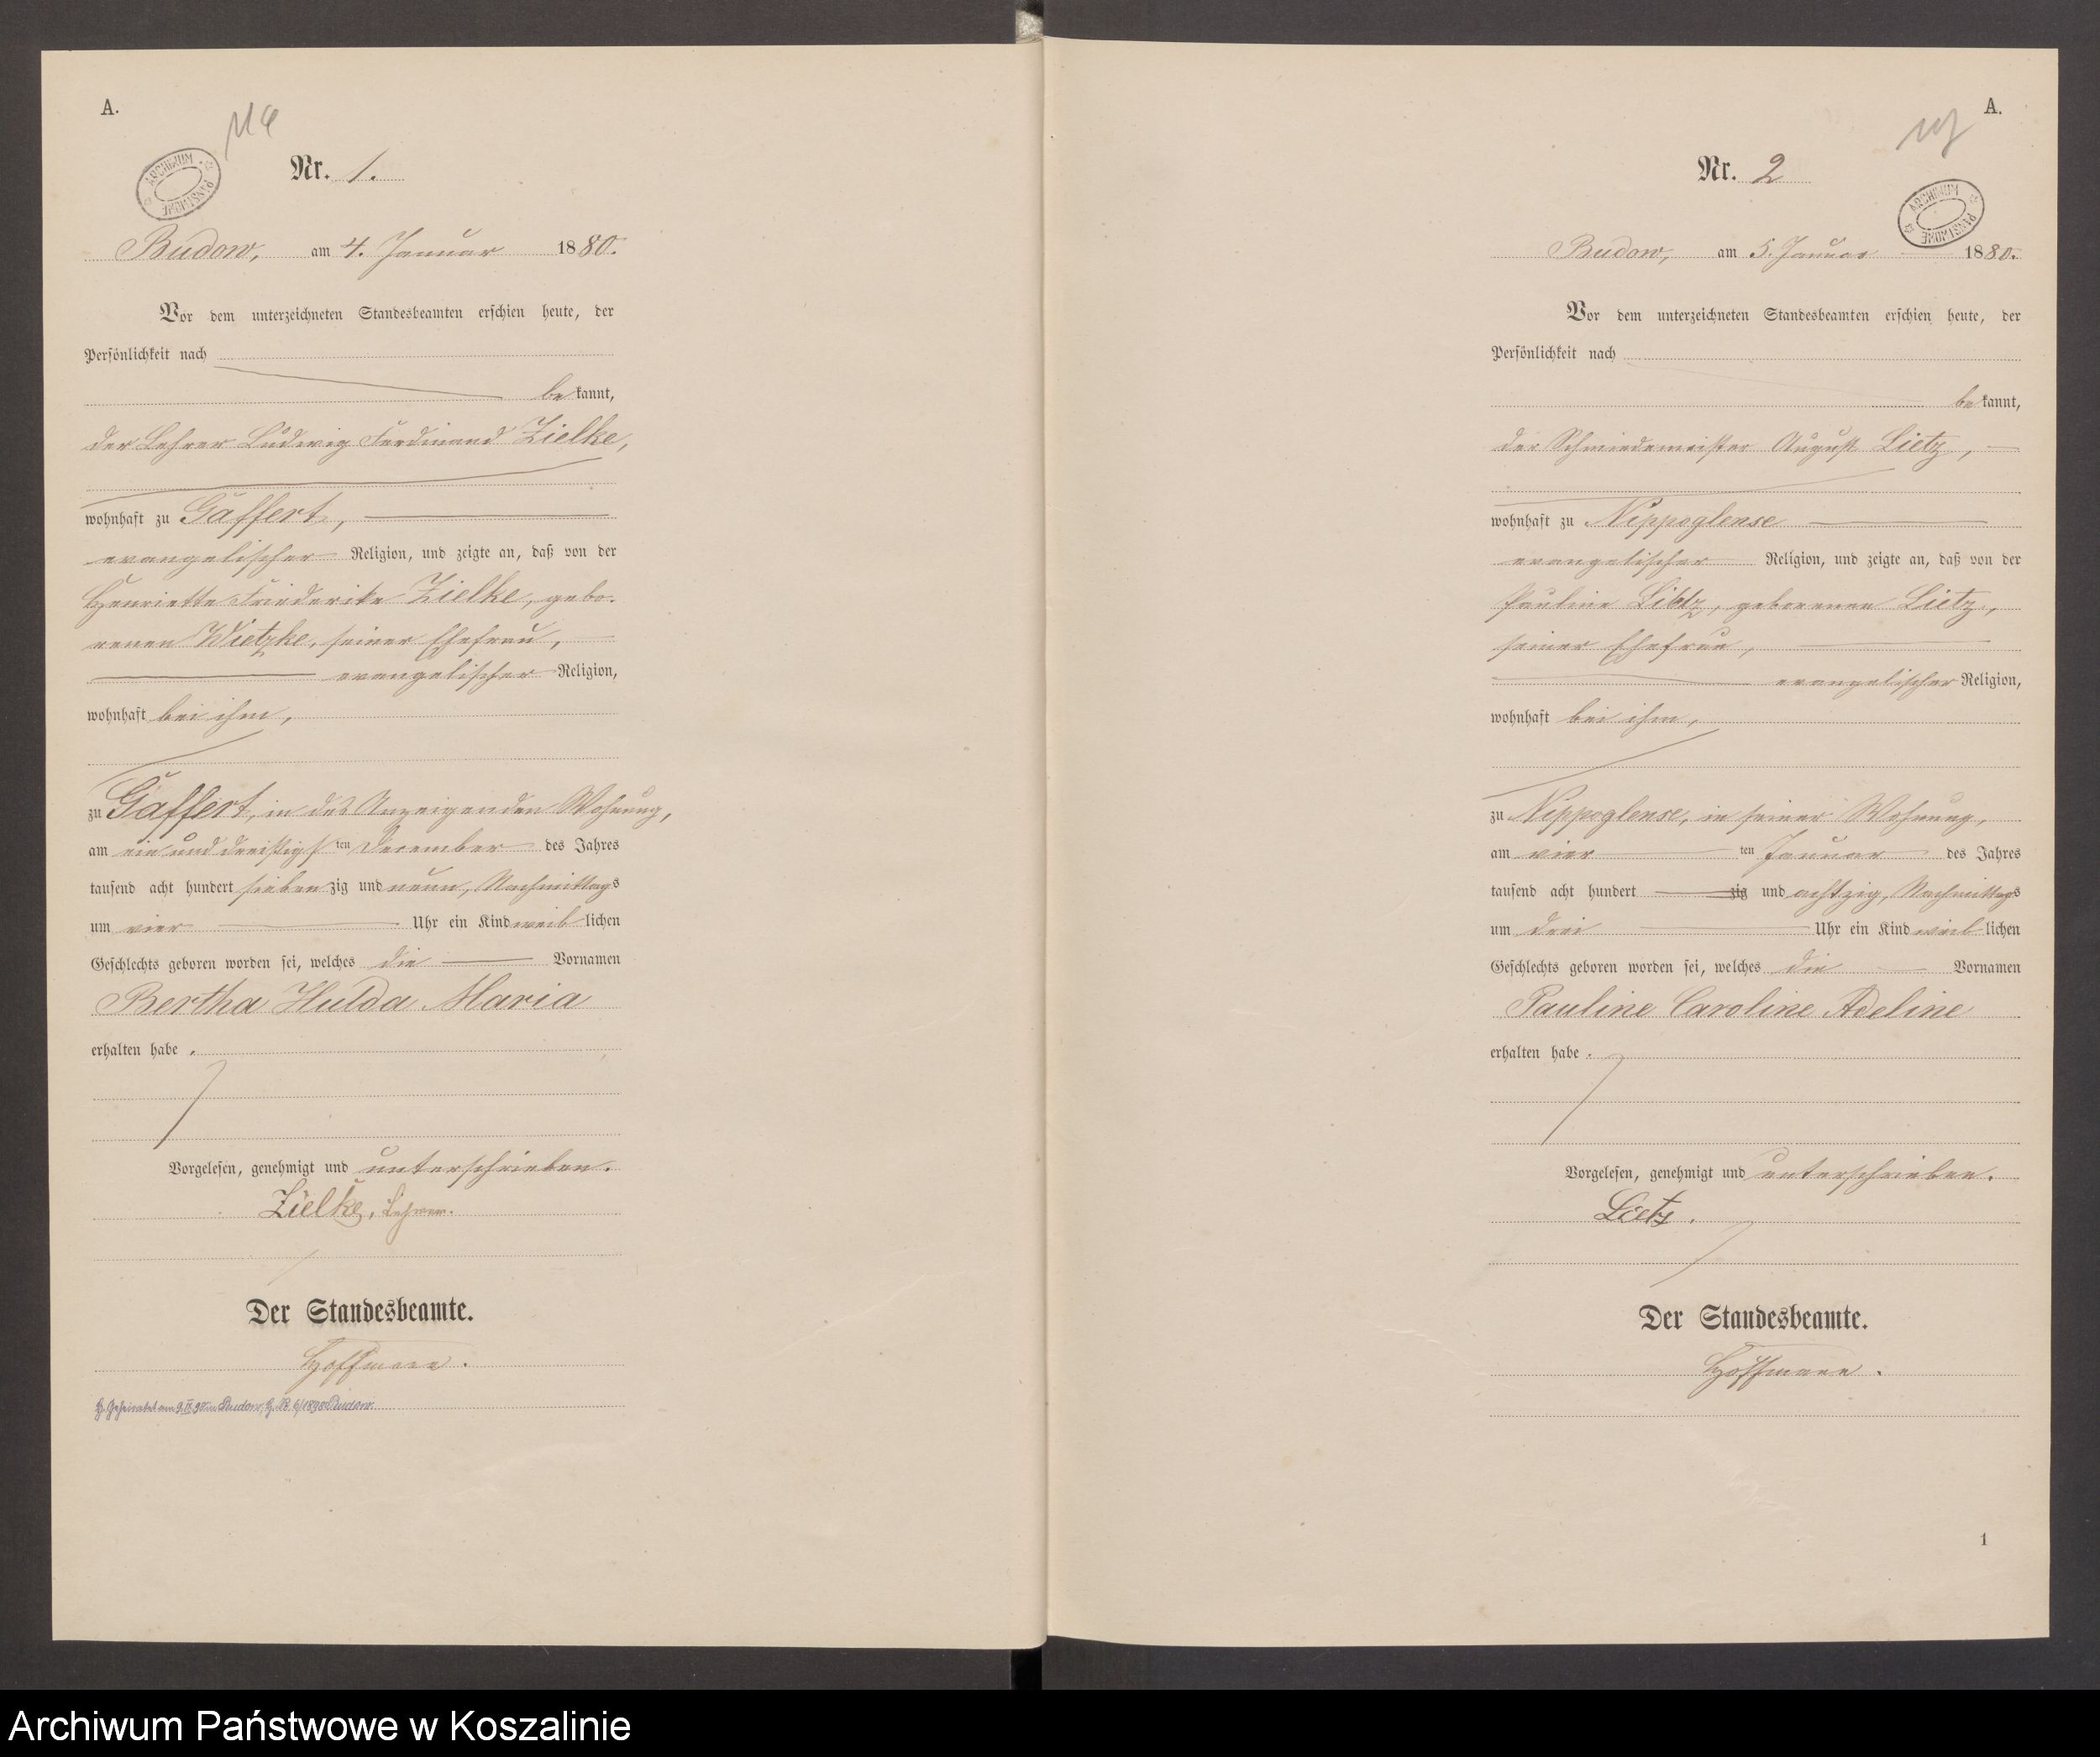 A.
Nr. 1.
Budow, am 4. Januar 1880.
Vor dem unterzeichneten Standesbeamten erschien heute, der
Persönlichkeit nach
bekannt,
der Lehrer Ludwig Ferdinand Zielke,
wohnhaft zu Gaffert,
evangelischer Religion, und zeigte an, daß von der
Henriette Friederike Zielke, gebo-
renen Wietzke, seiner Ehefrau,
evangelischer Religion,
wohnhaft bei ihm,
zu Gaffert, in des Anzeigenden Wohnung,
am ein und dreißigsten December des Jahres
tausend acht hundert siebenzig und neun, Nachmittags
um vier Uhr ein Kind weiblichen
Geschlechts geboren worden sei, welches die Vornamen
Bertha Hulda Maria
erhalten habe.
Vorgelesen, genehmigt und unterschrieben.
Zielke, Lehrer.
Der Standesbeamte.
Hoffmann.
ARCHIWUM PAŃSTWOWE
A.
Nr. 2
Budow, am 5. Januar 1880.
Vor dem unterzeichneten Standesbeamten erschien heute, der
Persönlichkeit nach
bekannt,
der Schmiedemeister August Lietz,
wohnhaft zu Nippoglense
evangelischer Religion, und zeigte an, daß von der
Pauline Lietz, geborenen Lietz,
seiner Ehefrau,
evangelischer Religion,
wohnhaft bei ihm,
zu Nippoglense, in seiner Wohnung,
am vierten Januar des Jahres
tausend acht hundert zig und achtzig, Nachmittags
um drei Uhr ein Kind weiblichen
Geschlechts geboren worden sei, welches die Vornamen
Pauline Caroline Adeline
erhalten habe.
Vorgelesen, genehmigt und unterschrieben.
Lietz.
Der Standesbeamte.
Hoffmann.
ARCHIWUM PAŃSTWOWE
1
Archiwum Państwowe w Koszalinie